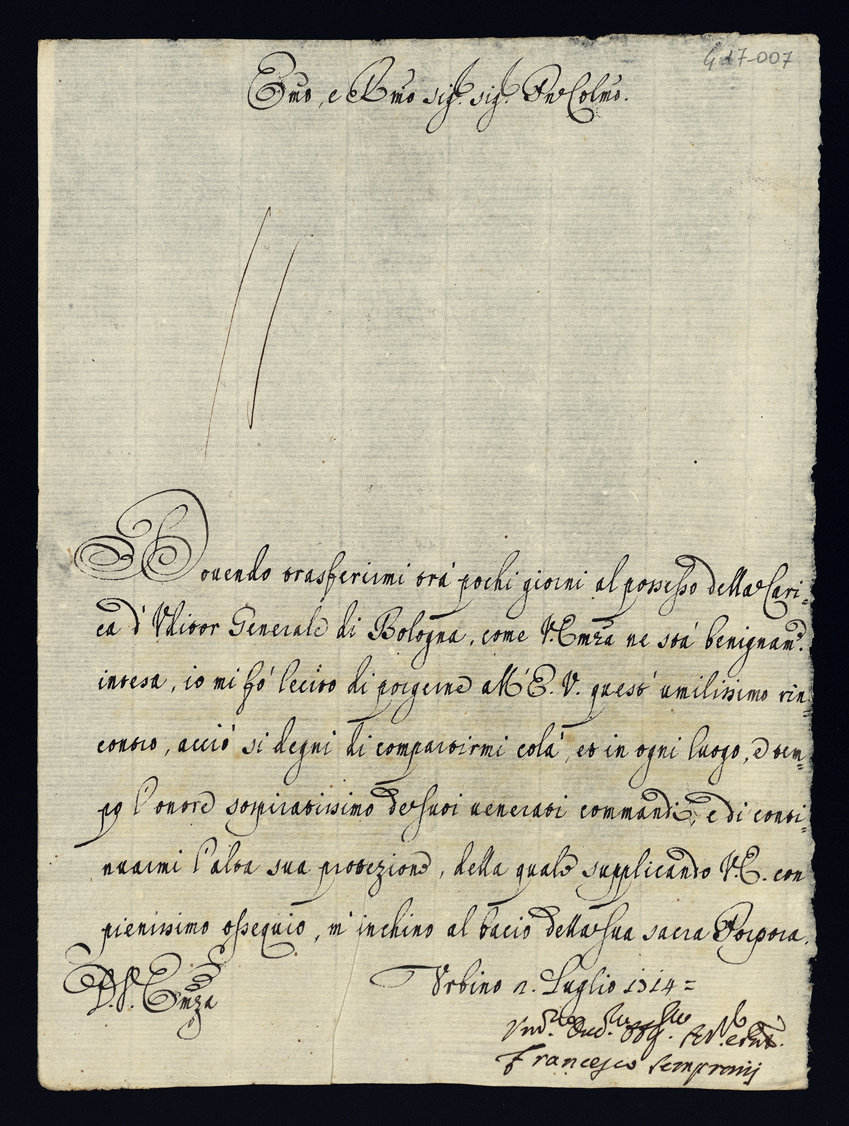 G 17-007
Emo, e Rmo sig.r sig.r Pne Colmo.
Dovendo trasferirmi trà pochi giorni al possesso della Cari=
ca d'Uditor Generale di Bologna, come V. Emza ne stà benignam.te
intesa, io mi fò lecito di porgerne all'E. V. quest'umilissimo rin=
contro, acciò si degni di compartirmi colà, et in ogni luogo, e tem=
po l'onore sospiratissimo de suoi venerati commandi, e di conti=
nuarmi l'alta sua protezione, della quale supplicando V. E. con
pienissimo ossequio, m'inchino al bacio della sua sacra Porpora.
D. V. Emza
Urbino 2. Luglio 1714=
Francesco Sempronij